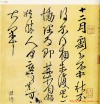 十二月割至不中秋不
復不得相未復還慟
理爲即甚省如
何然勝人何慶等
大軍